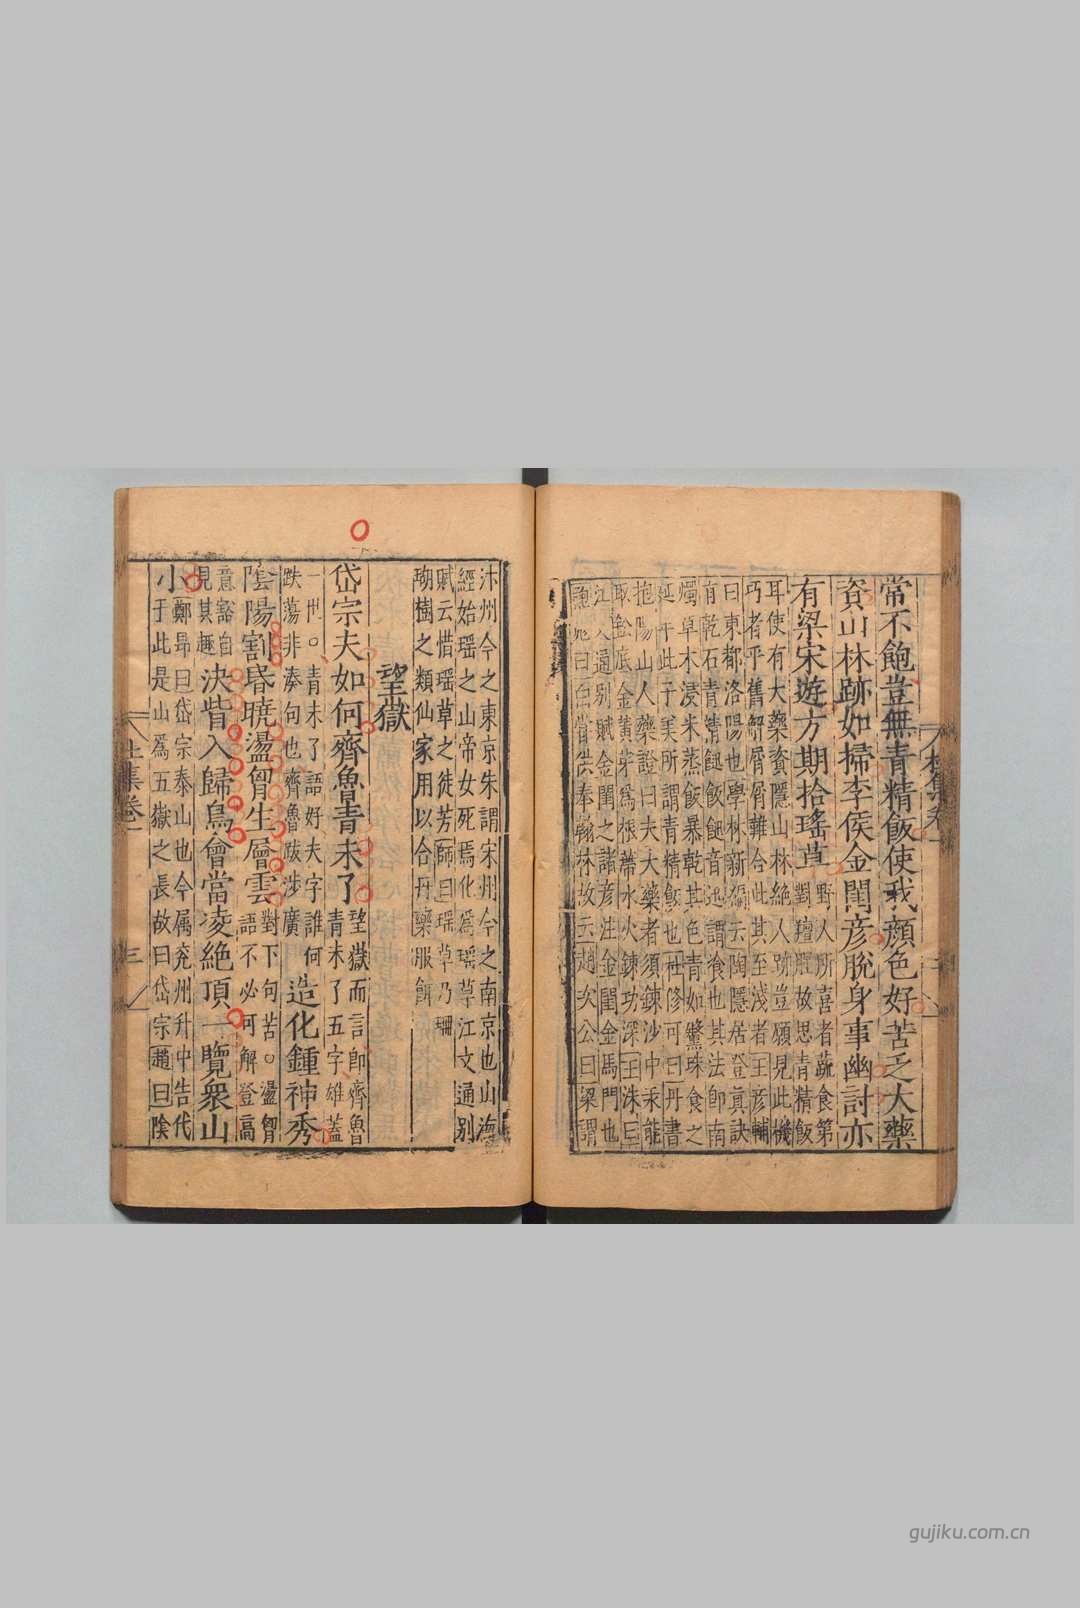 常不飽豈無青精飯使我顏色好苦乏大藥
資山林跡如掃李侯金閨彦脫身事幽討亦
有梁宋遊方期拾瑤草
野人所喜者蔬食第
對羶腥故思青精飯
耳使有大藥資隱山林絶人跡豈願見此機
巧者乎舊解屑屑雜合此其至淺者王彦輔
曰東都洛陽也學林新編云陶隱居登真訣
有乾石青精䭀飯䭀音迅謂飱也其法即南
燭草木浸米蒸飯暴乾其色青如鷖珠食之
延年此子美所謂青精飯也杜修可曰丹書
抱陽山人藥證曰夫大藥者須鍊沙中汞能
取金底金黃芽爲根蔕水火鍊功深王洙曰
江文通别賦金閨之諸彦注金閨金馬門也
曰白嘗供奉翰林故云趙次公曰梁謂
汴州今之東京朱謂宋州今之南京也山海
經始瑶之山帝女死焉化爲瑶草江文通别
賦云惜瑶草之徒芳師曰瑶草乃珊
瑚樹之類仙家用以合丹藥服餌
望嶽
岱宗夫如何齊魯青未了
望嶽而言即齊魯
青未了五字雄蓋
一世。青未了語好夫字誰何
跌蕩非湊句也齊魯跋涉廣
造化鍾神秀
陰陽割昏曉盪胷生層雲
對下句苦。盪胷
語不必可解登高
意豁自
見其趣
決眥入歸鳥會當凌絶頂一覽衆山
小
鄭昂曰岱宗泰山也今属兖州升中告代
于此是山爲五嶽之長故曰岱宗趙曰陰
杜集卷一
三
gujiku.com.cn